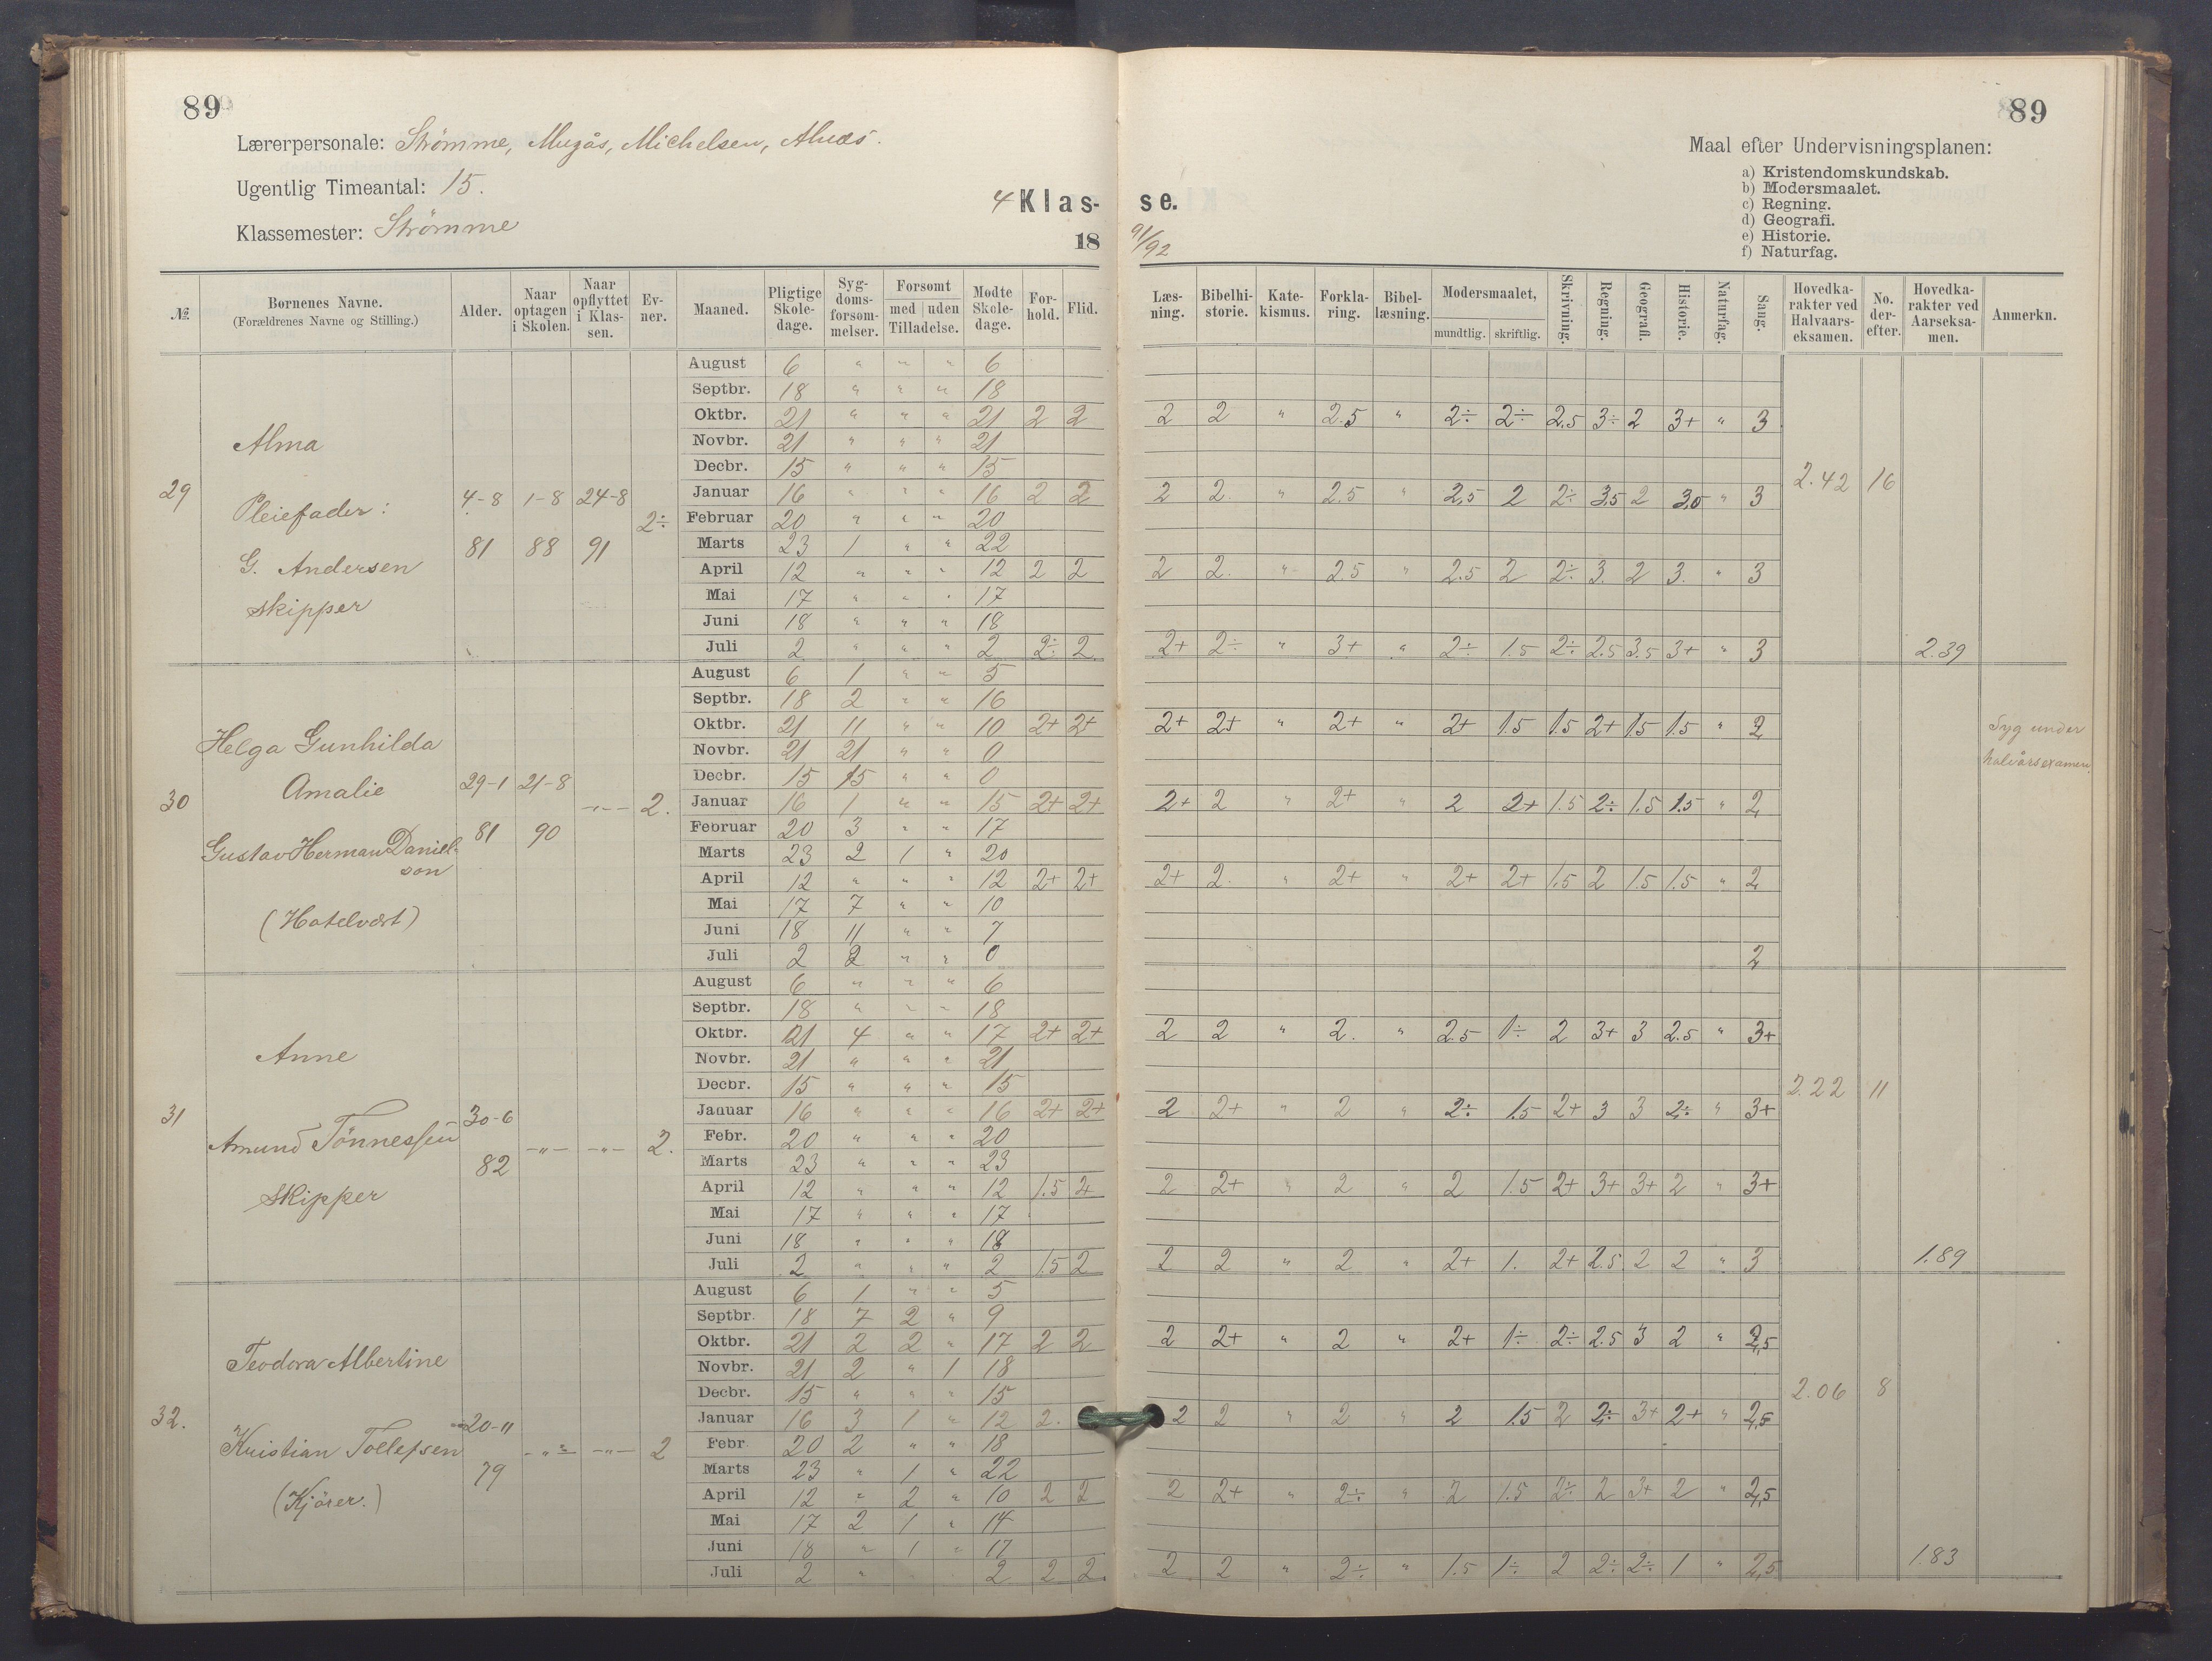 89
Lærerpersonale: Strømme, Mugås, Michelsen, Alnæs.
Ugentlig Timeantal: 15.
Klassemester: Strømme
4 Klas-
18
№.
Børnenes Navne. (Forældrenes Navne og Stilling.)
Alder.
Naar optagen i Skolen.
Naar opflyttet i Klassen.
Evner.
Maaned.
Pligtige Skoledage.
Sygdomsforsømmelser.
Forsømt
med | uden
Tilladelse.
Mødte Skoledage.
Forhold.
Flid.
29
Alma
Pleiefader:
G. Andersen
skipper
4-8 81
1-8 88
24-8 91
2÷
August 6 " " " 6
Septbr. 18 " " " 18
Oktbr. 21 " " " 21 2 2
Novbr. 21 " " " 21
Decbr. 15 " " " 15
Januar 16 " " " 16 2 2
Februar 20 " " " 20
Marts 23 1 " " 22
April 12 " " " 12 2 2
Mai 17 " " " 17
Juni 18 " " " 18
Juli 2 " " " 2 2÷ 2
30
Helga Gunhilda
Amalie
Gustav Herman Daniel-
son
(Hotelvært)
29-1 81
21-8 90
-"-
2.
August 6 1 " " 5
Septbr. 18 2 " " 16
Oktbr. 21 11 " " 10 2+ 2+
Novbr. 21 21 " " 0
Decbr. 15 15 " " 0
Januar 16 1 " " 15 2+ 2+
Februar 20 3 " " 17
Marts 23 2 1 " 20
April 12 " " " 12 2+ 2+
Mai 17 7 " " 10
Juni 18 11 " " 7
Juli 2 2 " " 0
31
Anne
Amund Tönnessen
Skipper
30-6 82
-"-
-"-
2.
August 6 " " " 6
Septbr. 18 " " " 18
Oktbr. 21 4 " " 17 2+ 2+
Novbr. 21 " " " 21
Decbr. 15 " " " 15
Januar 16 " " " 16 2+ 2+
Febr. 20 " " " 20
Marts 23 " " " 23
April 12 " " " 12 1.5 2+
Mai 17 " " " 17
Juni 18 " " " 18
Juli 2 " " " 2 1.5 2
32.
Teodora Albertine
Kristian Tollefsen
(Kjörer.)
20-11 79
-"-
-"-
2
August 6 1 " " 5
Septbr. 18 7 2 " 9
Oktbr. 21 2 2 " 17 2 2
Novbr. 21 2 " 1 18
Decbr. 15 " " " 15
Januar 16 3 1 " 12 2.
Febr. 20 2 " " 18
Marts 23 " 1 " 22
April 12 " 2 " 10 2 2
Mai 17 2 1 " 14
Juni 18 " 1 " 17
Juli 2 " 2 2 2
89
Maal efter Undervisningsplanen:
a) Kristendomskundskab.
b) Modersmaalet.
c) Regning.
d) Geografi.
e) Historie.
f) Naturfag.
se.
91/92
Læsning.
Bibelhistorie.
Katekismus.
Forklaring.
Bibellæsning.
Modersmaalet,
mundtlig. | skriftlig.
Skrivning.
Regning.
Geografi.
Historie.
Naturfag.
Sang.
Hovedkarakter ved Halvaarseksamen.
No. derefter.
Hovedkarakter ved Aarseksamen.
Anmerkn.
2 2 " 2.5 " 2÷ 2÷ 2.5 3÷ 2 3+ " 3
2 2. " 2.5 " 2,5 2 2÷ 3,5 2 3,5 " 3
2.42 16
2 2. " 2.5 " 2.5 2 2÷ 3. 2 3. " 3
2+ 2÷ " 3+ " 2÷ 1.5 2÷ 2.5 3.5 3+ " 3
2.39
2+ 2+ " 2+ " 2+ 1.5 1.5 2+ 1.5 1.5 " 2
Syg under
halvårsexamen.
2+ 2 " 2+ " 2 2+ 1.5 2÷ 1.5 1.5 " 2
2+ 2. " 2+ " 2+ 2+ 1.5 2 1.5 1.5 " 2
2
2 2 " 2. " 2.5 1÷ 2 3+ 3 2.5 " 3+
2.22 11
2 2+ " 2 " 2÷ 1.5 2+ 3 3 2÷ " 3+
2 2+ " 2 " 2 1.5 2+ 3+ 3+ 2 " 3+
2 2 " 2 " 2+ 1. 2+ 2.5 2 2 " 3
1.89
2 2+ " 2 " 2+ 1÷ 2÷ 2.5 3 2 " 2,5
2.06 8
2 2 " 2 " 2 1.5 2 2÷ 3+ 2+ " 2,5
2 2+ " 2÷ " 2 1.5 2÷ 2 3+ 2 " 2,5
2 2 " 2÷ " 1.5 1÷ 2 2÷ 2÷ 1 " 2,5
1.83